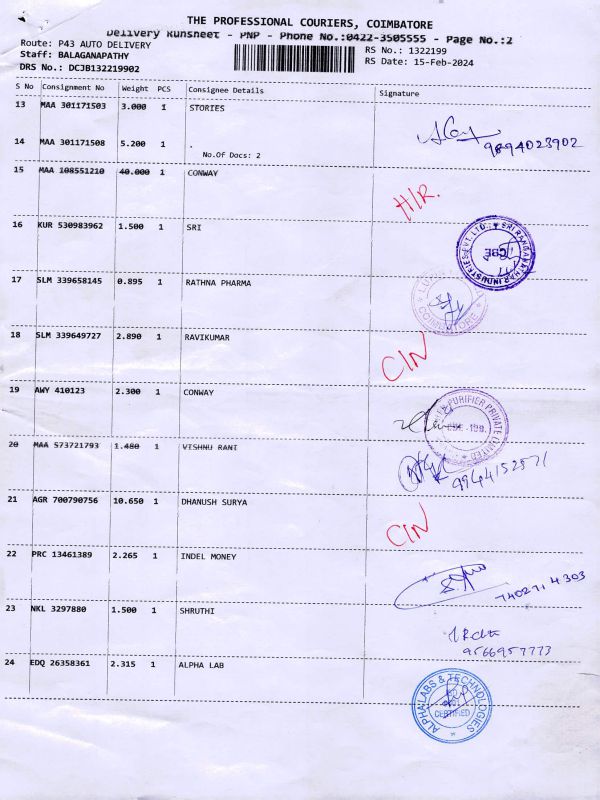 THE PROFESSIONAL COURIERS, COIMBATORE
Delivery Runsheet - PNP - Phone No.:0422-3505555 - Page No.:2
Route: P43 AUTO DELIVERY RS No.: 1322199
Staff: BALAGANAPATHY RS Date: 15-Feb-2024
DRS No.: DCJB132219902
S No Consignment No Weight PCS Consignee Details Signature
13 MAA 301171503 3.000 1 STORIES
14 MAA 301171508 5.200 1 .
No.Of Docs: 2
9894023902
15 MAA 108551210 40.000 1 CONWAY
H/R.
16 KUR 530983962 1.500 1 SRI
CBE
17 SLM 339658145 0.895 1 RATHNA PHARMA
18 SLM 339649727 2.890 1 RAVIKUMAR
C/N
19 AWY 410123 2.300 1 CONWAY
PURIFIER PRIVATE LIMITED
20 MAA 573721793 1.480 1 VISHNU RANT
21 AGR 700790756 10.650 1 DHANUSH SURYA
C/N
22 PRC 13461389 2.265 1 INDEL MONEY
7402714303
23 NKL 3297880 1.500 1 SHRUTHI
9566957773
24 EDQ 26358361 2.315 1 ALPHA LAB
ALPHA LABS & TECHNOLOGIES
CERTIFIED